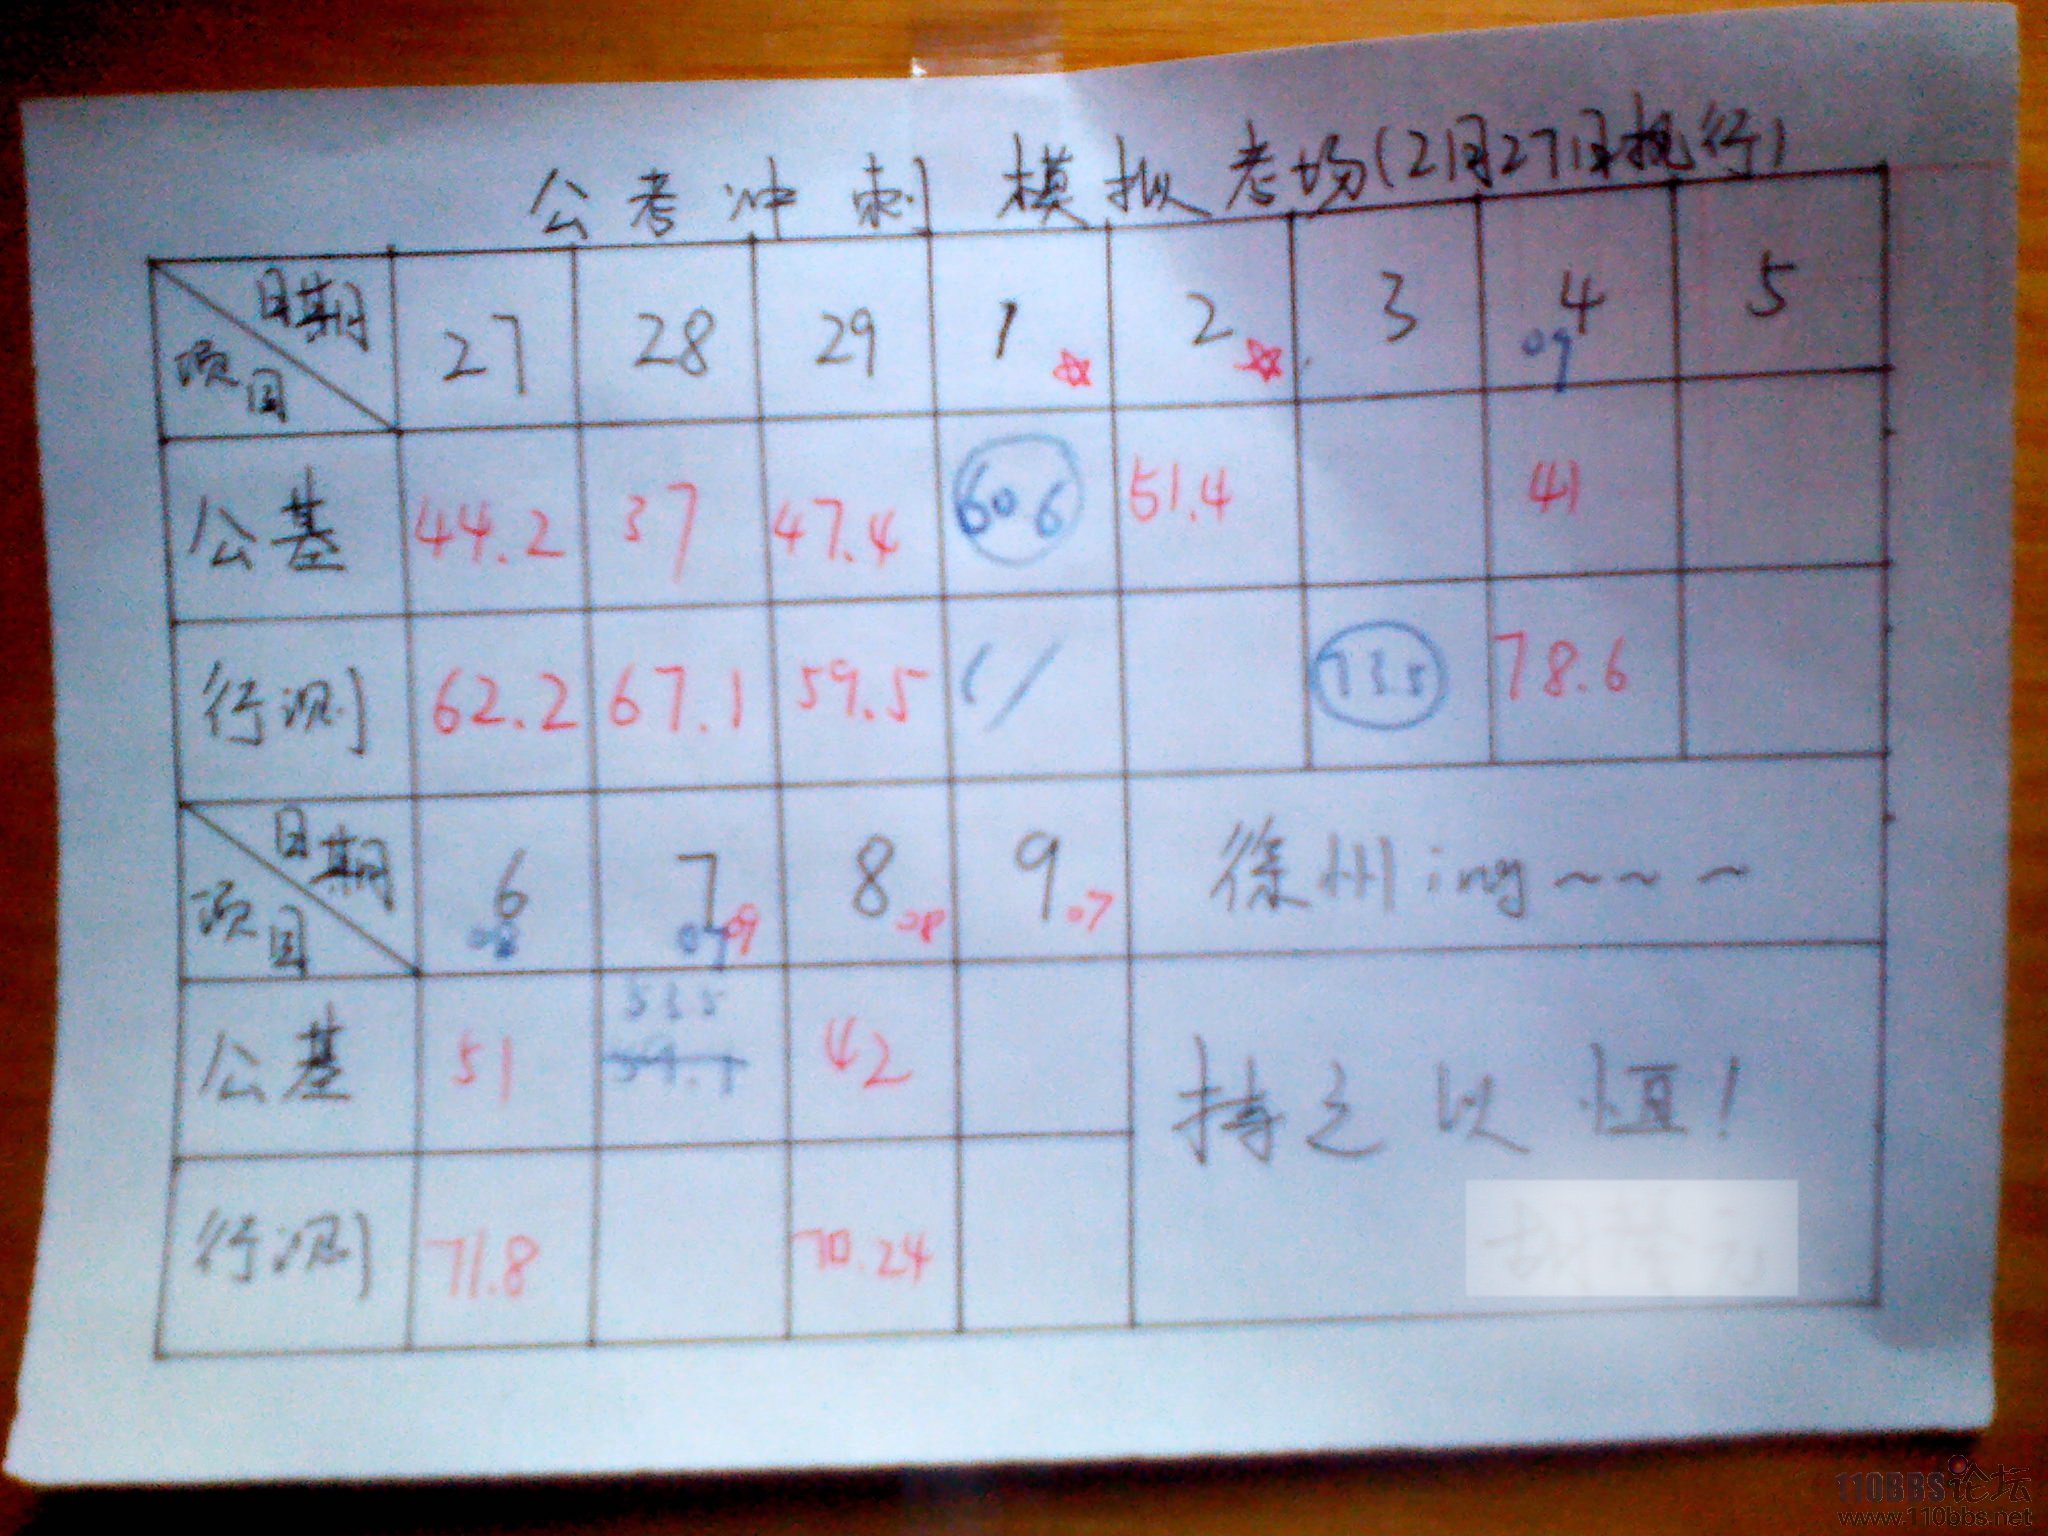 公考冲刺 模拟考场(2月27日执行)
日期 27 28 29 1 2 3 4 5
项目 09
公基 44.2 37 47.4 60.6 51.4 41
行测 62.2 67.1 59.5 73.5 78.6
日期 6 7 8 9 徐州ing~~~
项目 08 07 09 08 07
53.5
公基 51 42
持之以恒!
行测 71.8 70.24
110BBS论坛
www.110bbs.net